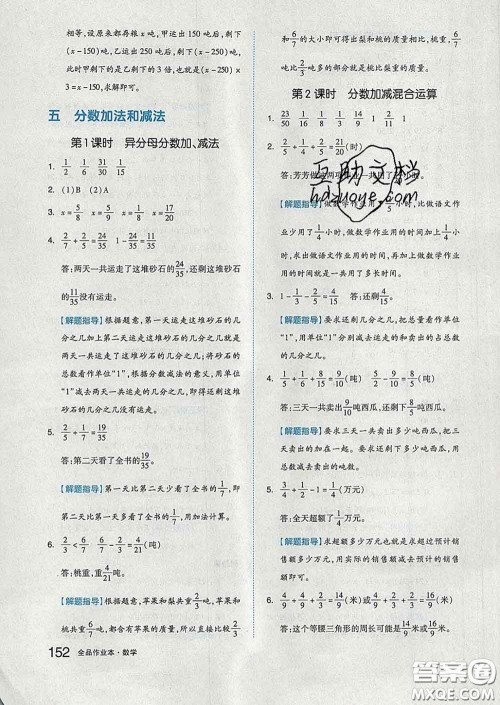 相等,原来都存粮x吨,甲运出150吨,甲剩下
(x-150)吨,乙运出250吨,乙剩下(x-250)吨,
此时甲剩下的是乙剩下的3倍,也就是3(x-250)
=x-150,求解即可。
五 分数加法和减法
第1课时 异分母分数加、减法
1. 1/2 1/6 31/35 31/30
2. (1)B (2)A
3. x=5/8 x=5/9 x=1/8 x=17/20
4. 2/7+2/5=24/35 1-24/35=11/35
答:两天一共运走了这堆砂石的24/35,还剩这堆砂石
的11/35没有运走。
【解题指导】根据题意,第一天运走这堆砂石的几
分之几,加上第二天运走这堆砂石的几分之几就是
两天一共运走了这堆砂石的几分之几;将砂石的
总数看作单位“1”,根据分数减法的意义,用单位
“1”减去两天一共运走的几分之几,即得还剩这堆
砂石的几分之几没有运走。
5. 2/5+1/7=19/35
答:第二天看了全书的19/35。
【解题指导】第一天比第二天少看了全书的1/7,即
第二天比第一天多看了全书的1/7,用加法计算。
6. 2/3<6/7 6/7-2/3=4/21(吨)
答:桃重,重4/21吨。
【解题指导】根据题意,苹果和梨共重2/3吨,苹果
和桃共重6/7吨,苹果的质量相等,所以直接比较2/3
152 全品作业本·数学
和6/7的大小即可得出梨和桃的质量相比,桃重,6/7
吨比2/3吨多多少吨。
第2课时 分数加减混合运算
1. 23/50 1/16 1/2 1 1/2 2/11 1
2. 2/5+1/4+2/5=21/20(时)
答:芳芳做这两项作业一共用了
【解题指导】做数学作业用
业少用了1/4小时,求做数学作业用的时间加上1/4
小时,求出做语文作业用的时间,再加上做数学作
业用的时间,就是一共用了多长时间。
3. 1-1/3-2/5=4/15 答:还剩4/15。
【解题指导】要求还剩几分之几,把总量看作单位
“1”,用单位“1”减去运走的和卖出的占总数的几
分之几。
4. 1/5+1/3+1/6=9/10(吨) 9/5-9/10=9/10(吨)
答:三天一共卖出9/10吨西瓜,还剩下9/10吨西瓜。
【解题指导】要求三天一共卖出多少吨西瓜,把三
天卖出的加在一起。要求还剩下多少吨西瓜,用
总数减去卖出的吨数。
5. 3/4+1/2-1=1/4(万元)
答:全天超额了1/4万元。
【解题指导】求超额多少万元也就是求超过预计
销售额多少万元,用实际的销售额减去预计的销
售额即可。
6. 4/9+4/9+2/3=14/9(米) 2/3+2/3+4/9=16/9(米)
答:这个等腰三角形的周长可能是14/9米或16/9米。
互助文档
hdzuoye.com
答案圈
MXQE.COM